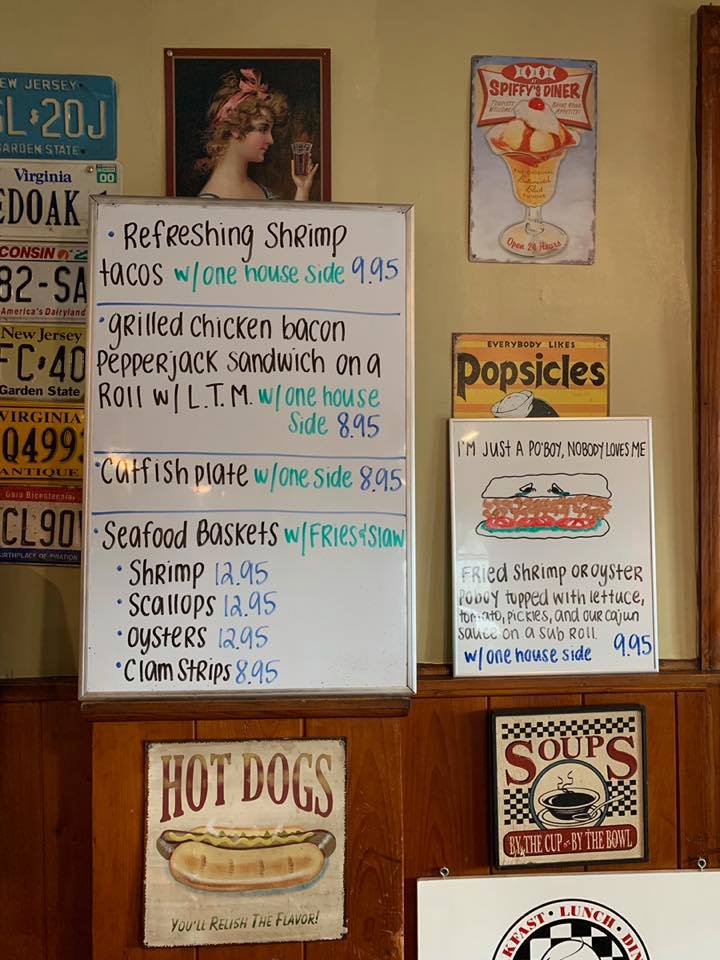 EW JERSEY
GL 20J
GARDEN STATE
Virginia 00
EDOAK
CONSIN
82-SA
America's Dairyland
New Jersey
FC 40
Garden State
VIRGINIA
Q499
ANTIQUE
Bicentennial
CL90
BIRTHPLACE OF AVIATION
• Refreshing Shrimp
tacos w/one house side 9.95
• grilled chicken bacon
Pepperjack sandwich on a
Roll w/ L.T.M. w/one house
Side 8.95
• Catfish plate w/one side 8.95
• Seafood Baskets w/Fries & Slaw
• Shrimp 12.95
• Scallops 12.95
• Oysters 12.95
• Clam Strips 8.95
EAT
AT
SPIFFY'S DINER
TOURISTS WELCOME!
BRING YOUR APPETITE!
THE ORIGINAL
Butterscotch
Open 24 Hours
EVERYBODY LIKES
Popsicles
I'M JUST A PO'BOY, NOBODY LOVES ME
FRIED Shrimp OR OYSTER
POBOY topped with lettuce,
tomato, pickles, and our cajun
sauce on a sub Roll
w/one house side 9.95
HOT DOGS
YOU'LL RELISH THE FLAVOR!
SOUPS
BY THE CUP OR BY THE BOWL
KFAST • LUNCH • DIN